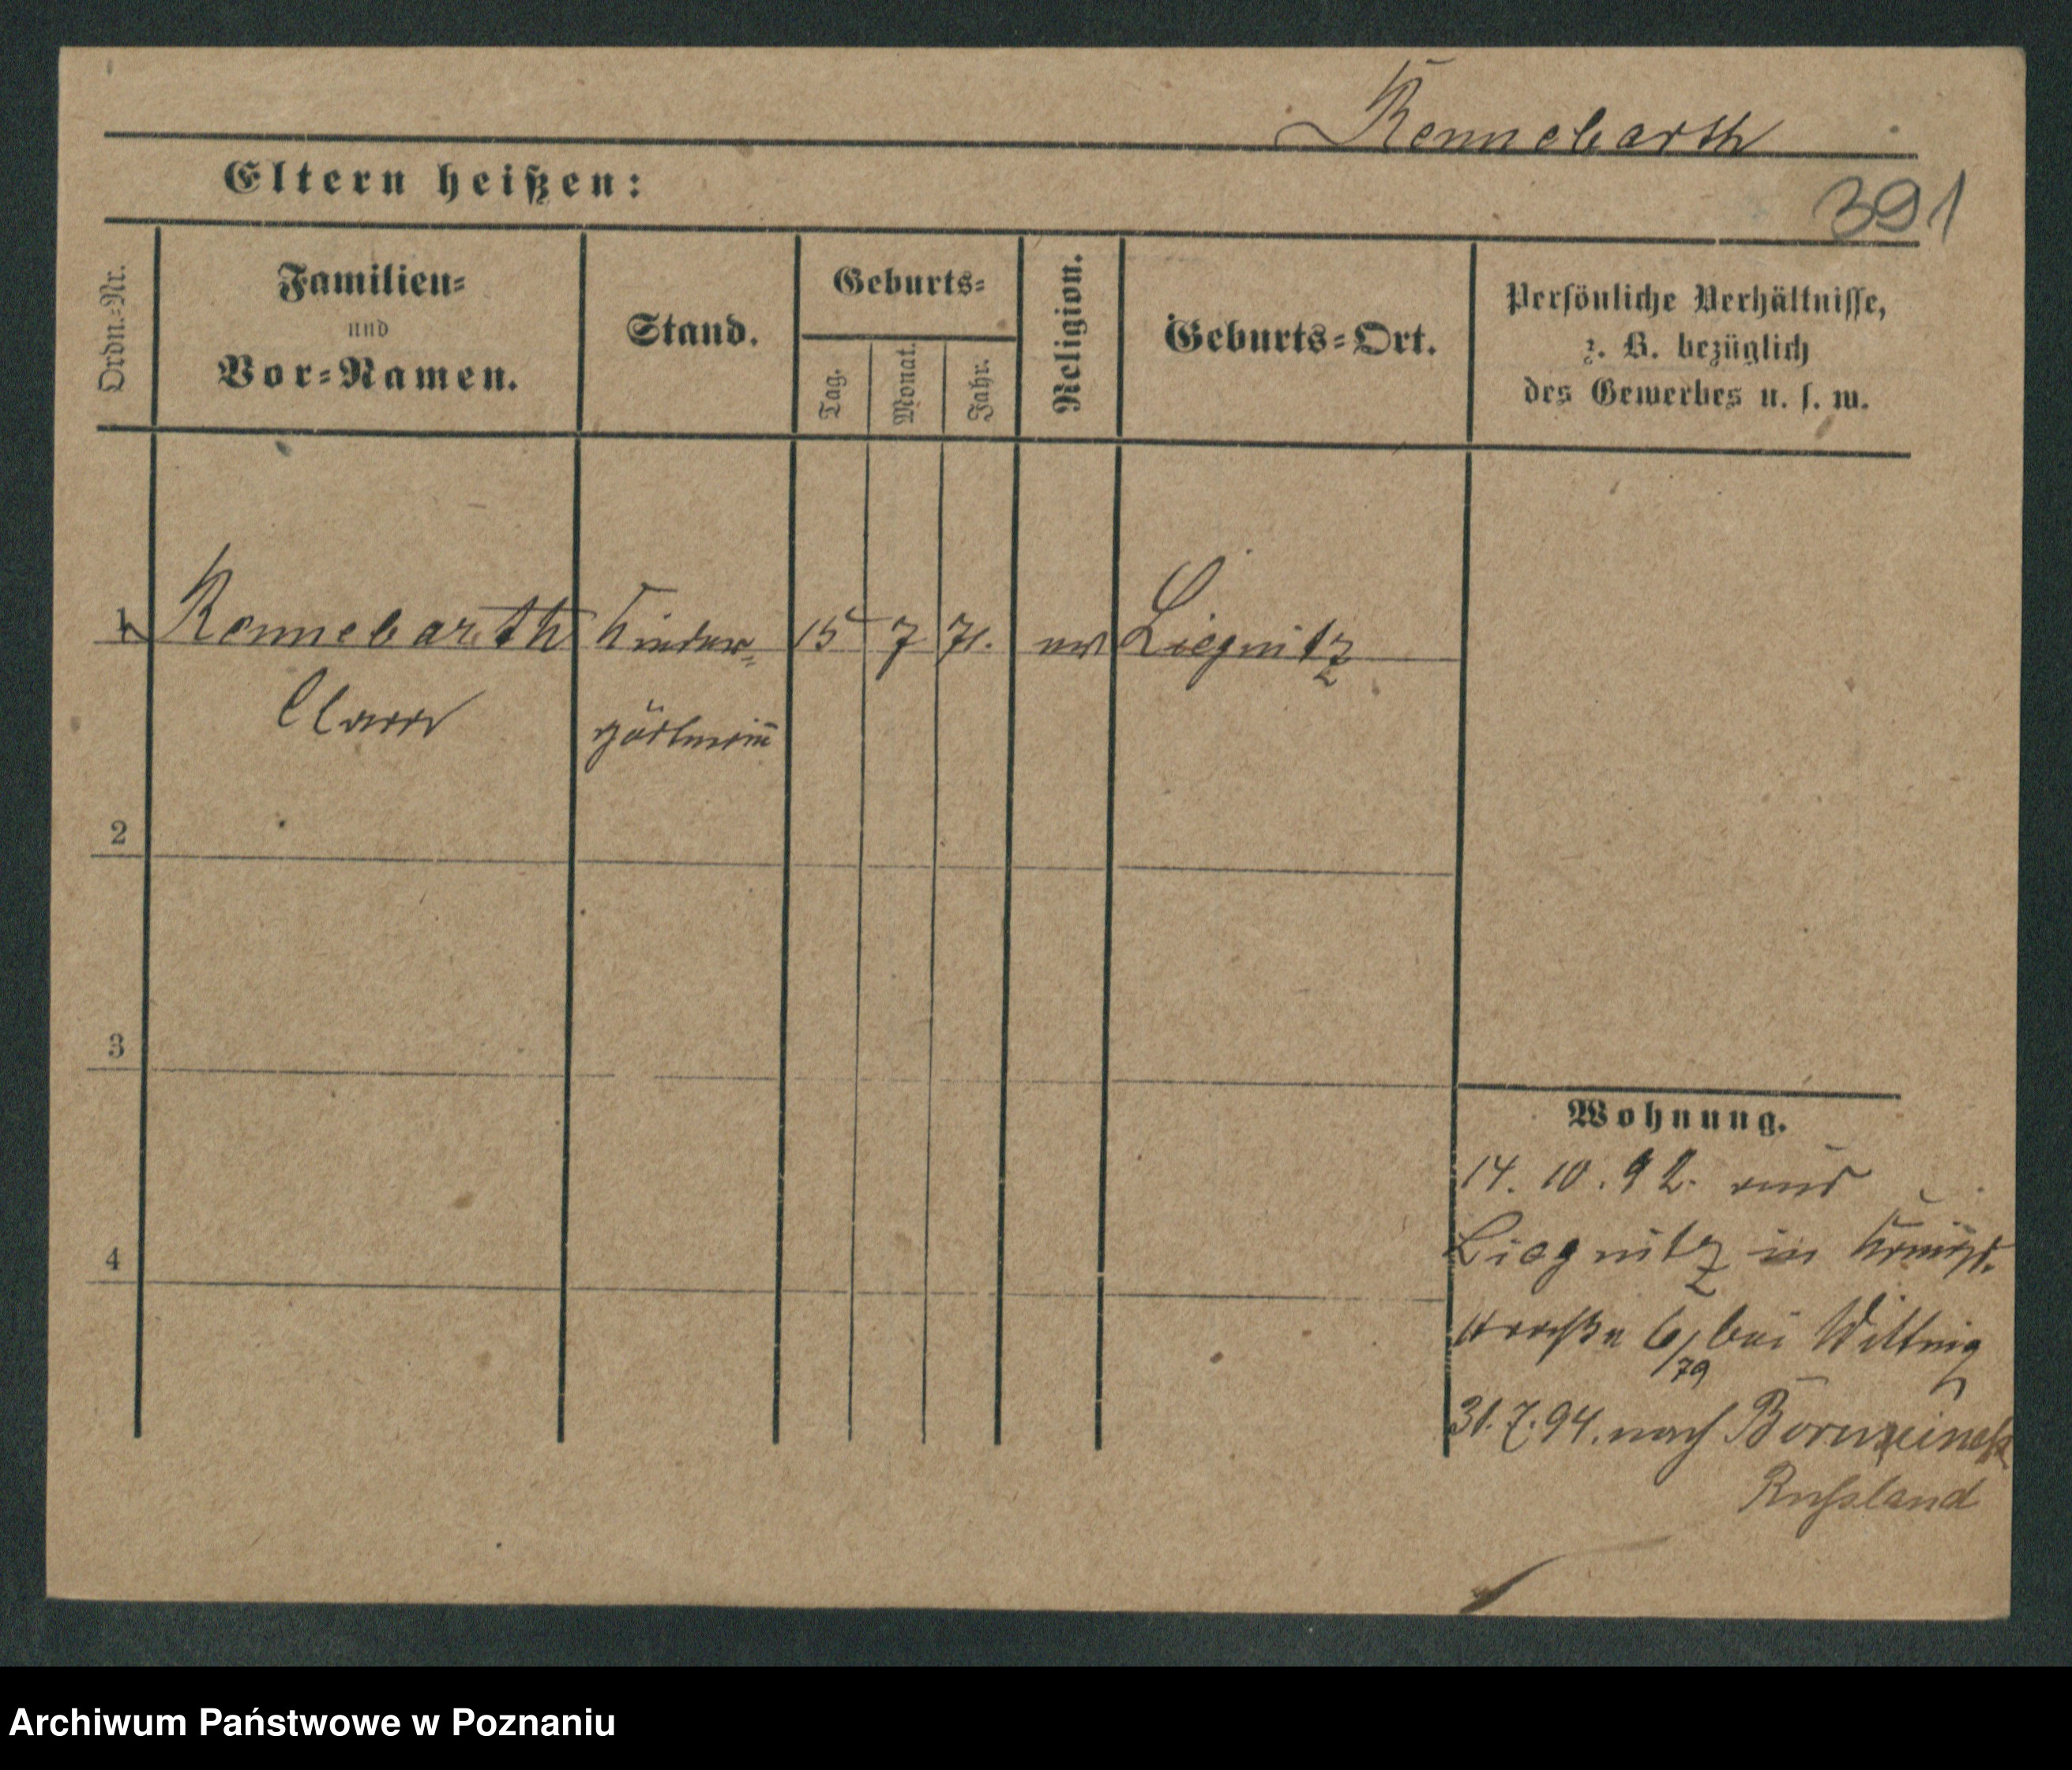 Rennebarth
Eltern heißen:
391
Ordn.-Nr.
Familien-
und
Vor-Namen.
Stand.
Geburts-
Tag.
Monat.
Jahr.
Religion.
Geburts-Ort.
Persönliche Verhältnisse,
z. B. bezüglich
des Gewerbes u. s. w.
1 Rennebarth Kinder- 15 7 71. ev Liegnitz
Clara gärtnerin
2
3
4
Wohnung.
14. 10. 92. aus
Liegnitz in Königs-
straße 6/79 bei Wittnig
31. 7. 94. nach
Russland
Archiwum Państwowe w Poznaniu